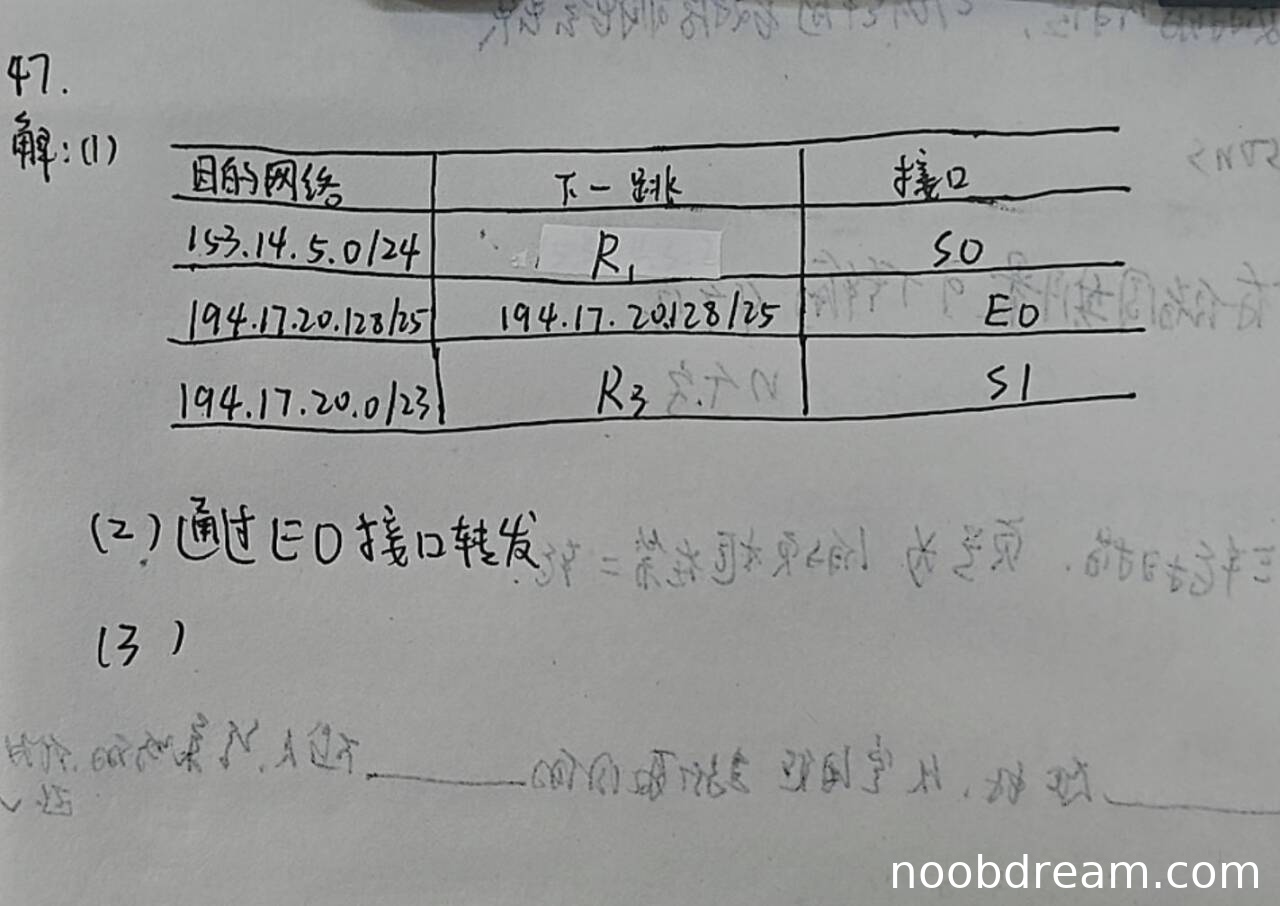 47.
解:(1)
目的网络 下一跳 接口
153.14.5.0/24 R1 S0
194.17.20.128/25 194.17.20.128/25 E0
194.17.20.0/23 R3 S1
(2)通过E0接口转发
(3)
noobdream.com